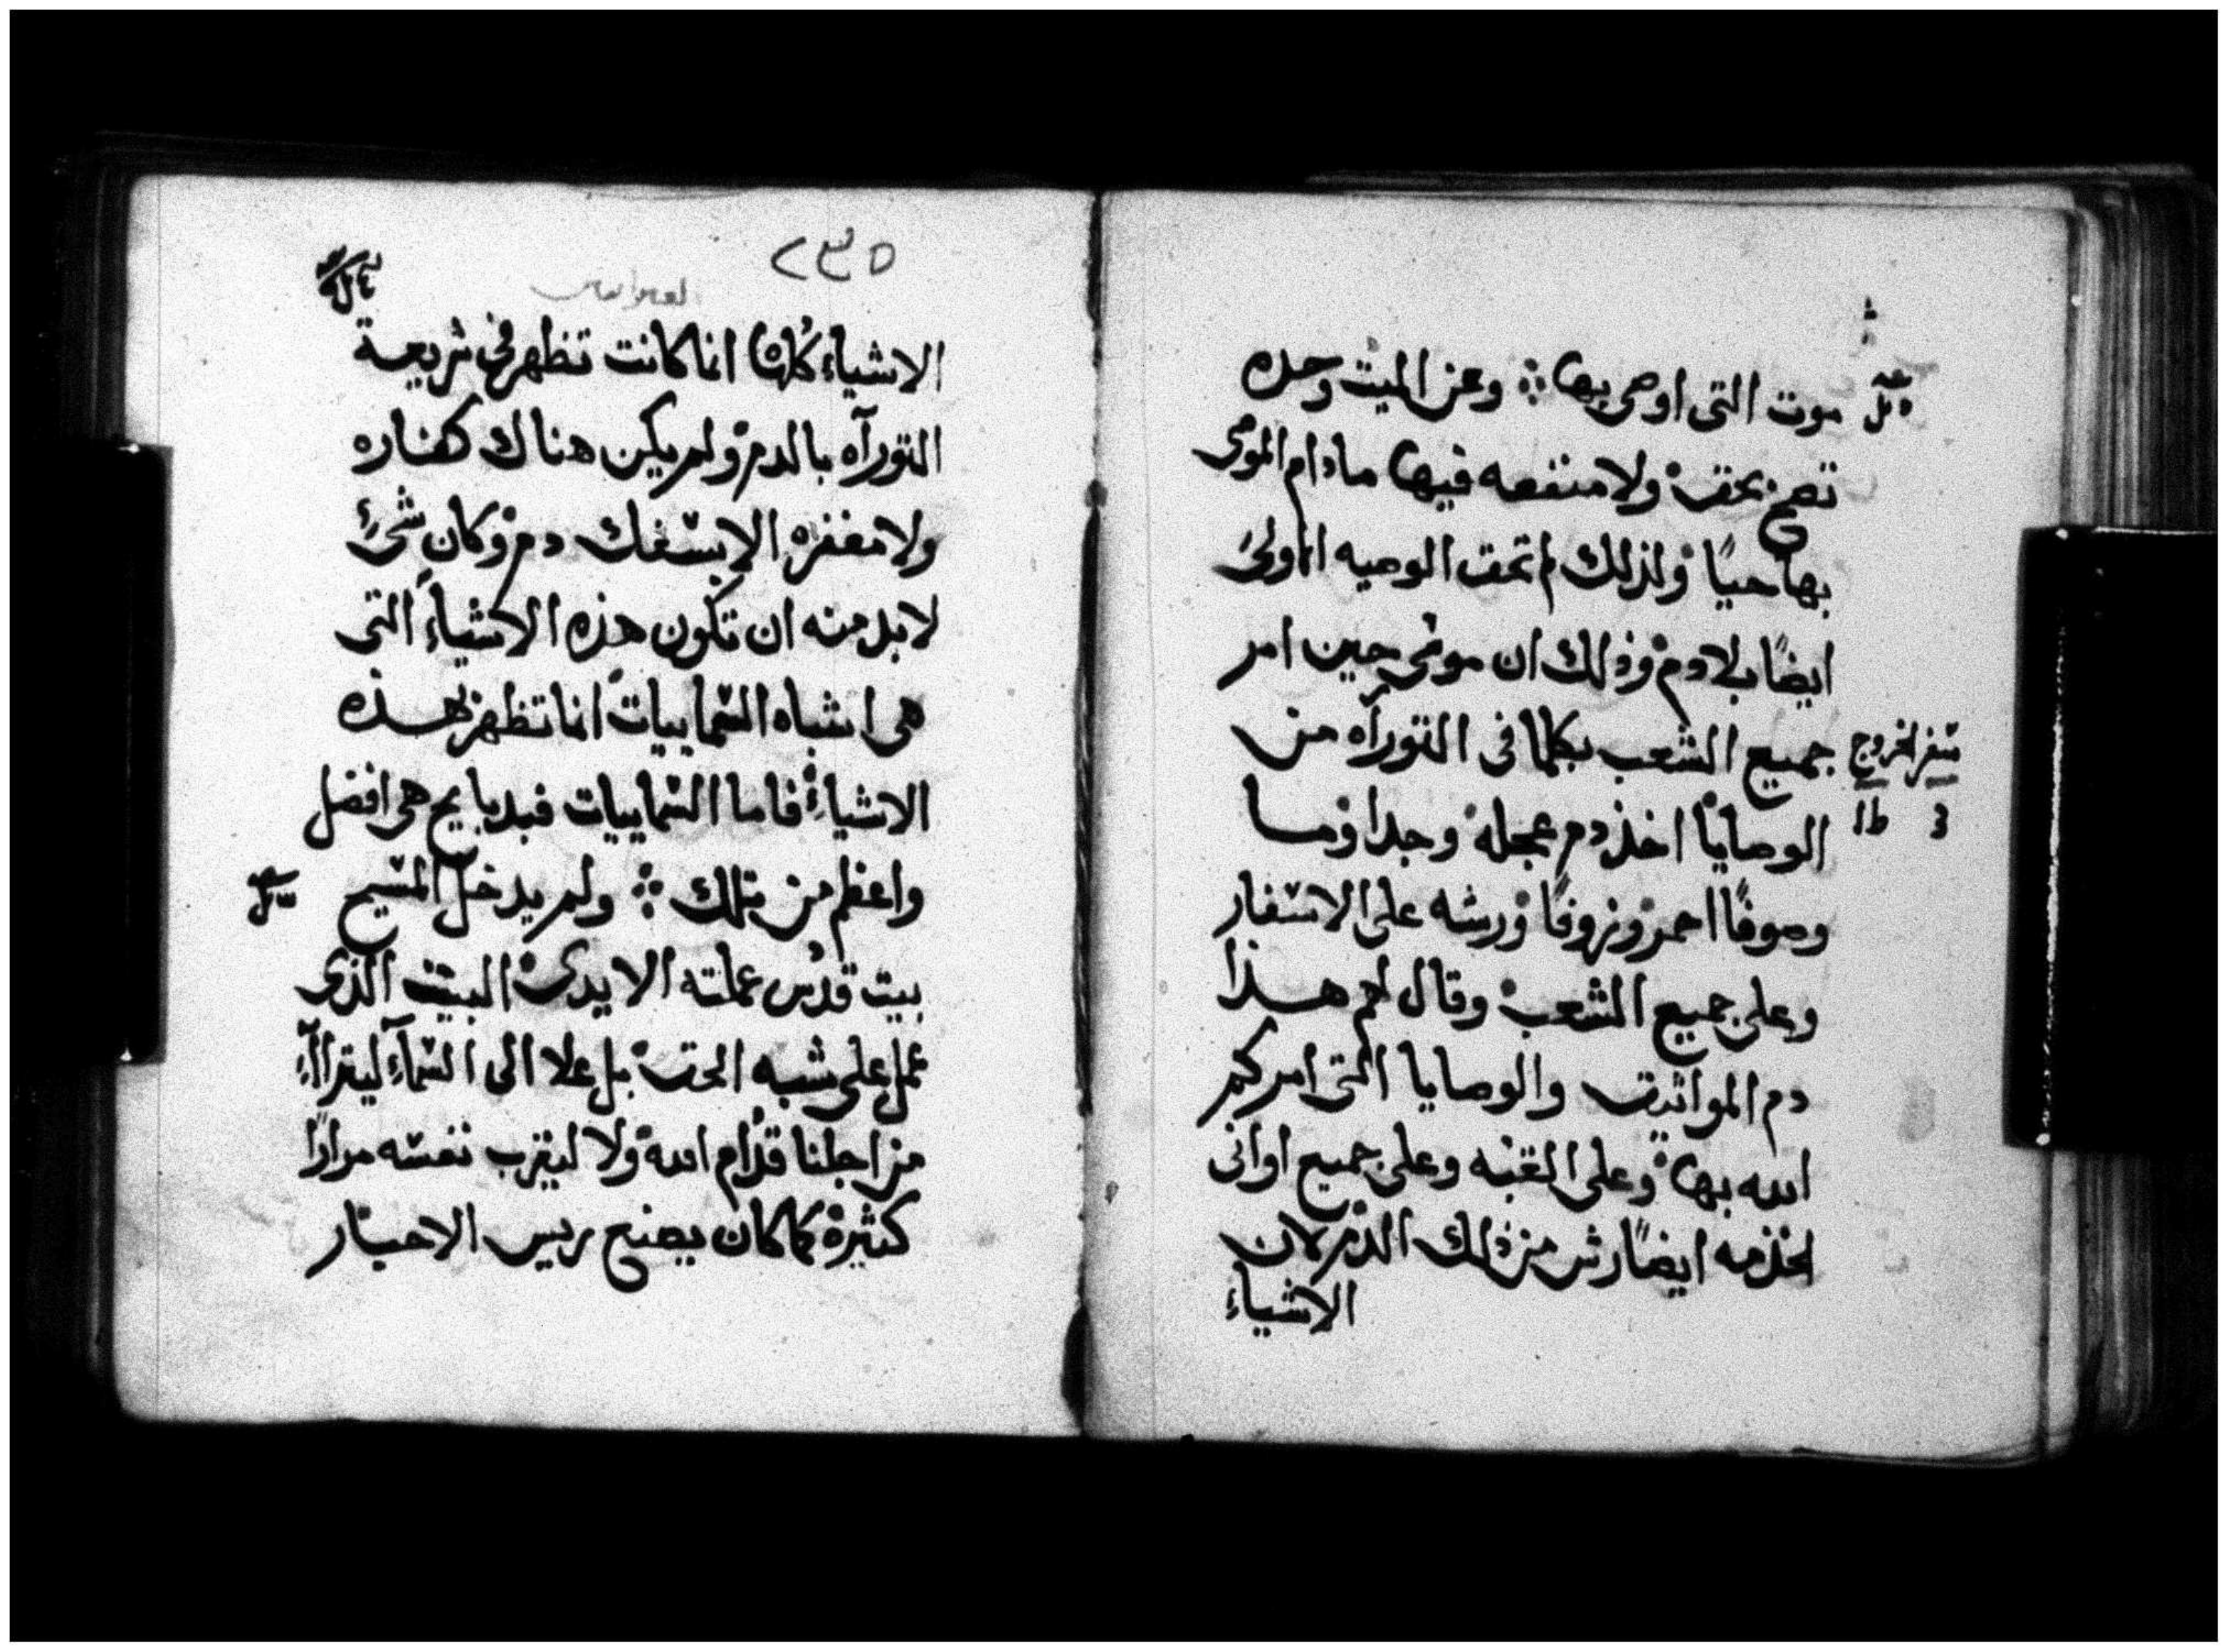 موت التى اوصى بها ⁘ وعن الميت وحده
تصح بحق ولا منفعه فيها مادام الموصى
بها حيًا ولذلك لم تحق الوصيه الاولى
ايضًا بلا دم وذلك ان موسى حين امر
جميع الشعب بكلما فى التوراه من
سفر الخروج
الوصايا اخذ دم عجله وجدا وما
وصوفًا احمر وزوفًا ورشه على الاسفار
وعلى جميع الشعب وقال لهم هذا
دم المواثيق والوصايا التى امركم
الله بها وعلى القبه وعلى جميع اوانى
الخذمه ايضًا رش من ذلك الدم لان
الاشياء
٢٣٥
الاشياء كلها انما كانت تظهر فى شريعة
التورآه بالدم ولم يكن هناك كفاره
ولا مغفره الا بسفك دم وكان شئ
لا بد منه ان تكون هذه الاشياء التى
هى اشباه السماييات انما تظهر بهذه
الاشياء فاما السماييات فبدبايح هى افضل
واعظم من تلك ⁘ ولم يدخل المسيح
بيت قدس عملته الايدى البيت الذى
عمل على شبه الحق بل علا الى السمآء ليترآآء
من اجلنا قدام الله ولا ليقرب نفسه مرارًا
كثيرة كما كان يصنع ريس الاحبار